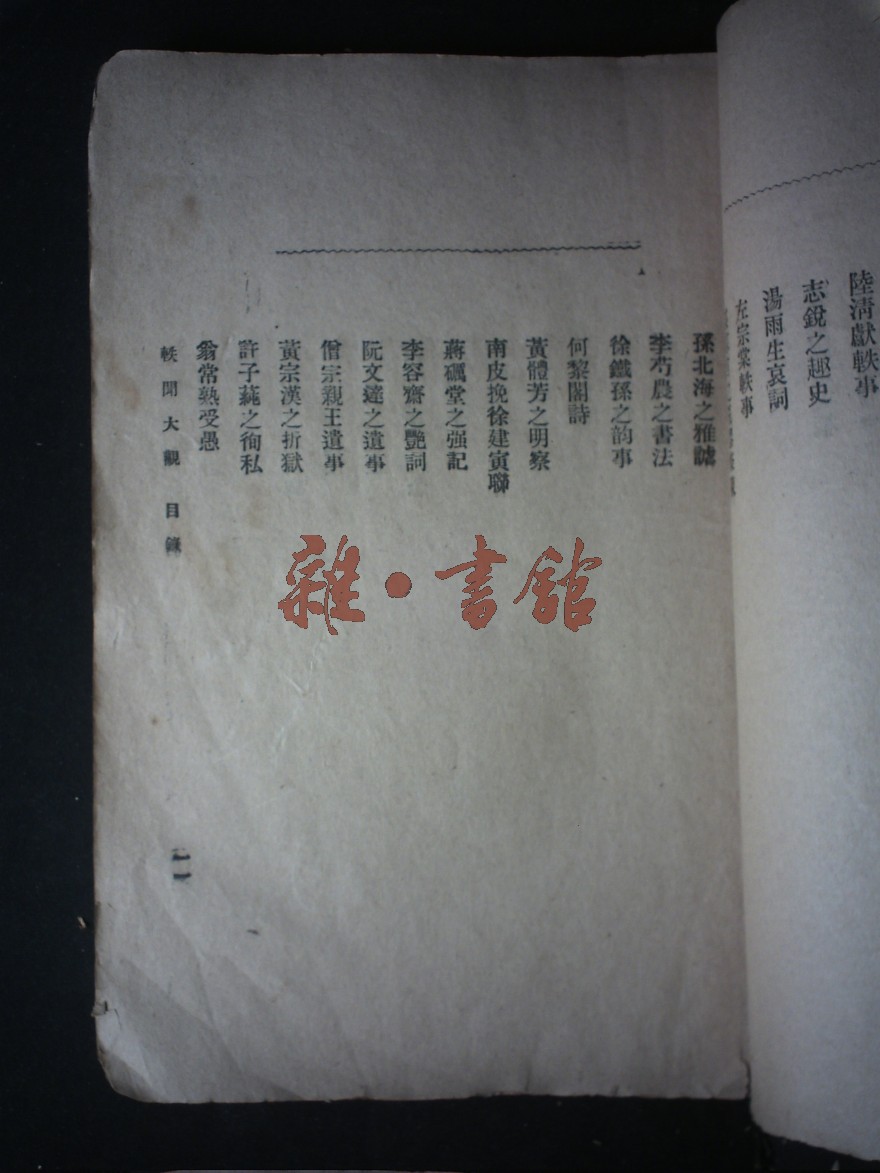 陸淸獻軼事
志銳之趣史
湯雨生哀詞
左宗棠軼事
孫北海之雅謔
李芍農之書法
徐鐵孫之韵事
何黎閣詩
黃體芳之明察
南皮挽徐建寅聯
蔣礪堂之强記
李容齋之艷詞
阮文達之遺事
僧宗親王遺事
黃宗漢之折獄
許子蒓之徇私
翁常熟受愚
軼聞大觀 目錄
雜·書館